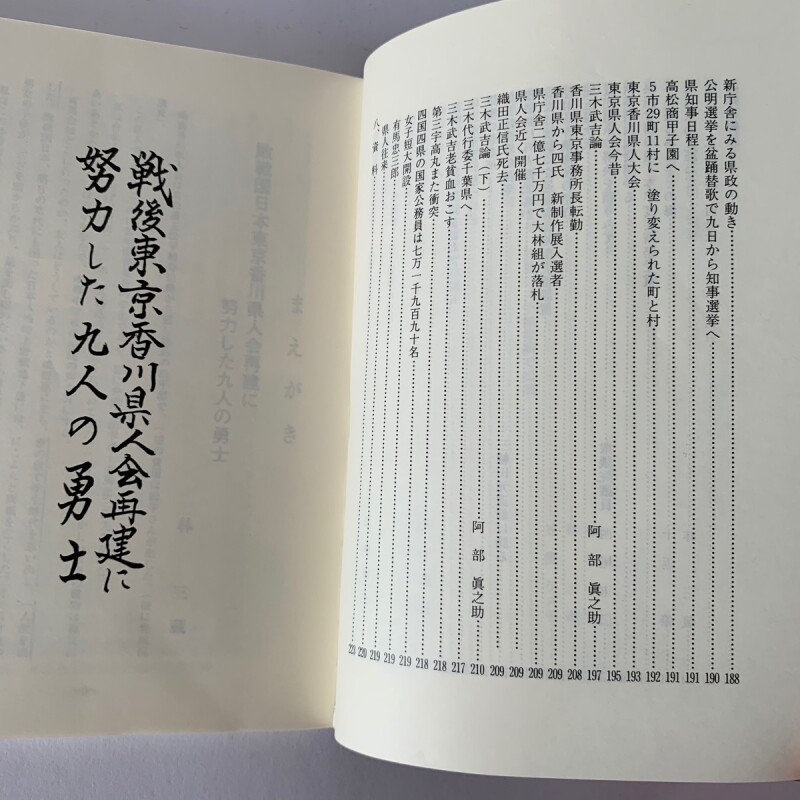 新庁舎にみる県政の動き……188
公明選挙を盆踊替歌で九日から知事選挙へ……190
県知事日程……191
高松商甲子園へ……191
5市29町11村に　塗り変えられた町と村……192
東京香川県人大会……193
東京県人会今昔……195
三木武吉論……阿部眞之助……197
香川県東京事務所長転勤……208
香川県から四氏　新制作展入選者……209
県庁舎二億七千万円で大林組が落札……209
県人会近く開催……209
織田正信氏死去……209
三木武吉論（下）……阿部眞之助……210
三木代行委千葉県へ……217
三木武吉老貧血おこす……218
第三宇高丸また衝突……218
四国四県の国家公務員は七万一千九百九十名……219
女子短大開設……219
有馬忠三郎……219
県人往来……220
八、資料……223
戦後東京香川県人会再建に
努力した九人の勇士
まえがき
日本東京香川県人会再建に
努力した九人の勇士